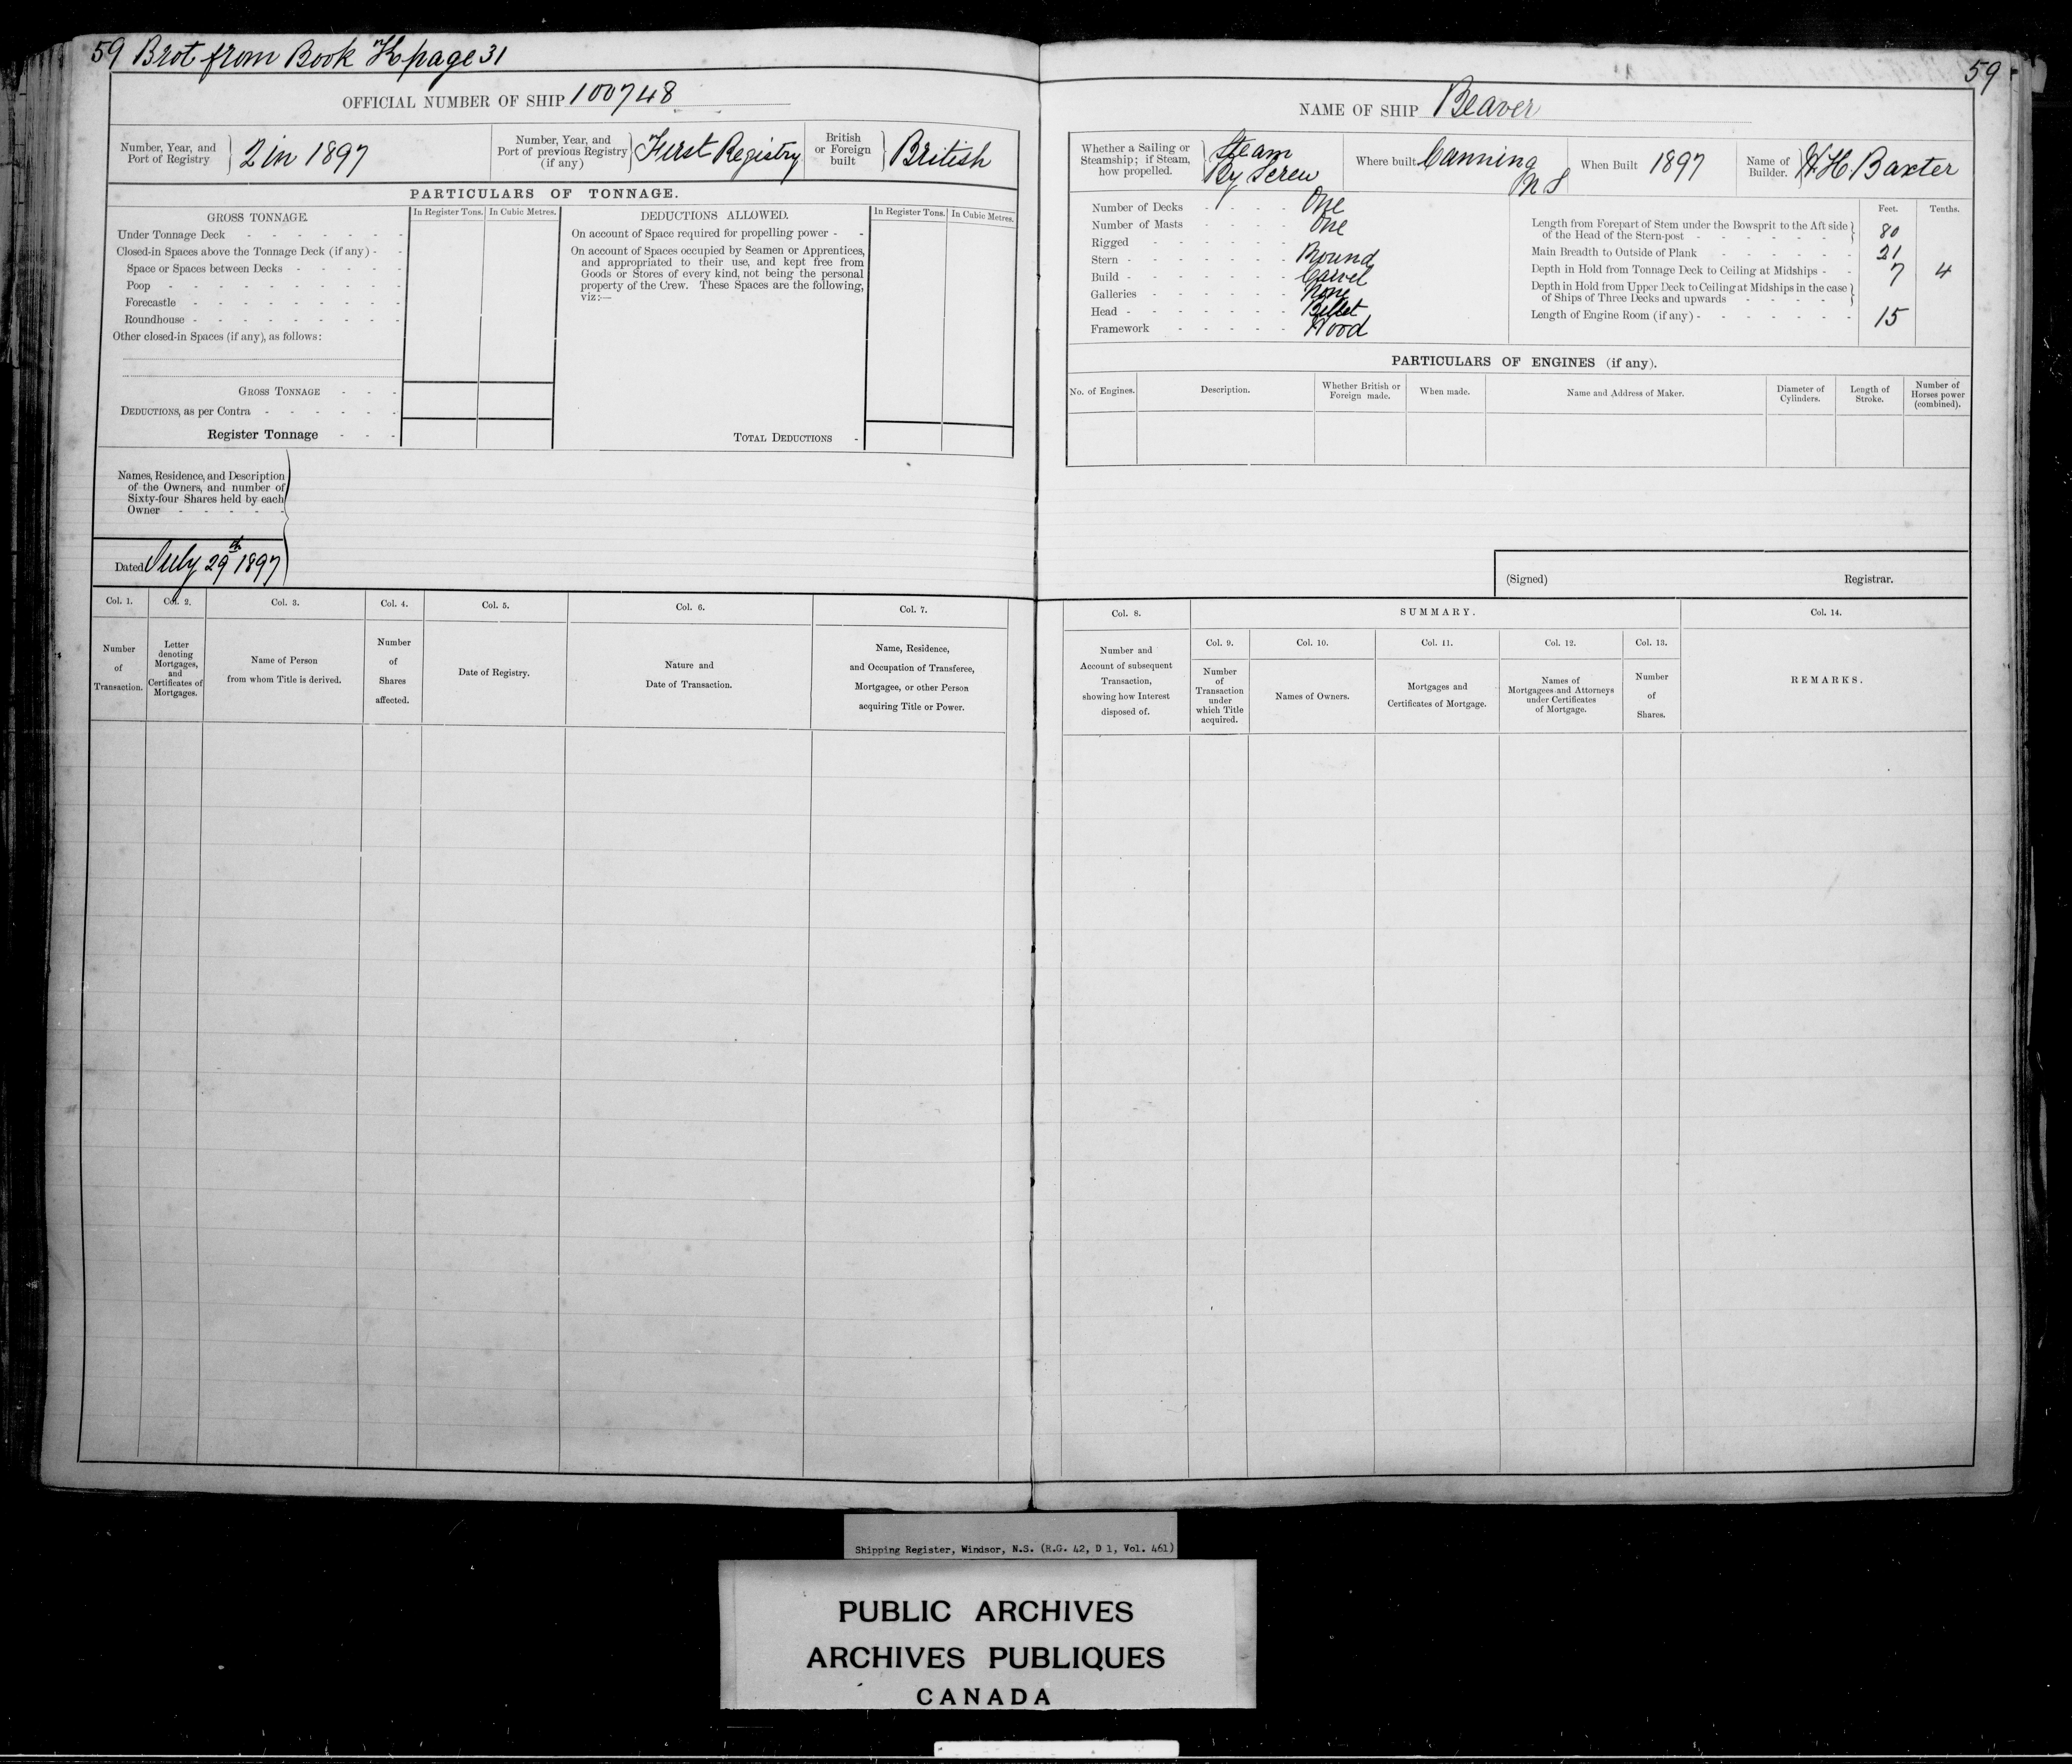 59 Brot from Book "K" page 31
OFFICIAL NUMBER OF SHIP 100748
Number, Year, and Port of Registry } 2 in 1897
Number, Year, and Port of previous Registry (if any) } First Registry
British or Foreign built } British
PARTICULARS OF TONNAGE.
GROSS TONNAGE. In Register Tons. In Cubic Metres.
Under Tonnage Deck
Closed-in Spaces above the Tonnage Deck (if any)
Space or Spaces between Decks
Poop
Forecastle
Roundhouse
Other closed-in Spaces (if any), as follows:
GROSS TONNAGE
DEDUCTIONS, as per Contra
Register Tonnage
DEDUCTIONS ALLOWED. In Register Tons. In Cubic Metres.
On account of Space required for propelling power
On account of Spaces occupied by Seamen or Apprentices,
and appropriated to their use, and kept free from
Goods or Stores of every kind, not being the personal
property of the Crew. These Spaces are the following,
viz:—
TOTAL DEDUCTIONS
Names, Residence, and Description
of the Owners, and number of
Sixty-four Shares held by each
Owner
Dated July 29th 1897
Col. 1. Col. 2. Col. 3. Col. 4. Col. 5. Col. 6. Col. 7.
Number of Transaction.
Letter denoting Mortgages, and Certificates of Mortgages.
Name of Person from whom Title is derived.
Number of Shares affected.
Date of Registry.
Nature and Date of Transaction.
Name, Residence, and Occupation of Transferee, Mortgagee, or other Person acquiring Title or Power.
59
NAME OF SHIP Beaver
Whether a Sailing or Steamship; if Steam, how propelled. } Steam By Screw
Where built Canning N S
When Built 1897
Name of Builder. } H. H. Baxter
Number of Decks One
Number of Masts One
Rigged
Stern Round
Build Carvel
Galleries None
Head Billet
Framework Wood
Feet. Tenths.
Length from Forepart of Stem under the Bowsprit to the Aft side of the Head of the Stern-post 80
Main Breadth to Outside of Plank 21
Depth in Hold from Tonnage Deck to Ceiling at Midships 7 4
Depth in Hold from Upper Deck to Ceiling at Midships in the case of Ships of Three Decks and upwards
Length of Engine Room (if any) 15
PARTICULARS OF ENGINES (if any).
No. of Engines.
Description.
Whether British or Foreign made.
When made.
Name and Address of Maker.
Diameter of Cylinders.
Length of Stroke.
Number of Horses power (combined).
(Signed) Registrar.
Col. 8. SUMMARY. Col. 14.
Col. 9. Col. 10. Col. 11. Col. 12. Col. 13.
Number and Account of subsequent Transaction, showing how Interest disposed of.
Number of Transaction under which Title acquired.
Names of Owners.
Mortgages and Certificates of Mortgage.
Names of Mortgagees and Attorneys under Certificates of Mortgage.
Number of Shares.
REMARKS.
Shipping Register, Windsor, N.S. (R.G. 42, D 1, Vol. 461)
PUBLIC ARCHIVES
ARCHIVES PUBLIQUES
CANADA